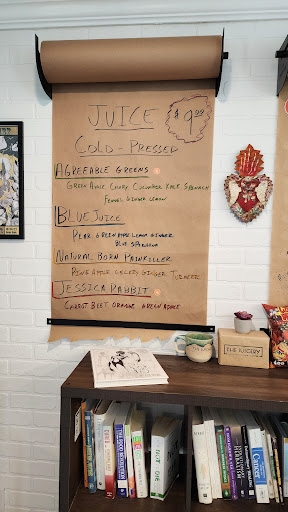 JUICE
$9.99
COLD-PRESSED
AGREEABLE GREENS
GREEN APPLE CELERY CUCUMBER KALE SPINACH
FENNEL GINGER LEMON
BLUE JUICE
PEAR GREEN APPLE LEMON GINGER
BLUE SPIRULINA
NATURAL BORN PAINKILLER
PINEAPPLE CELERY GINGER TURMERIC
JESSICA RABBIT
CARROT BEET ORANGE GREEN APPLE
THE JUICERY
NOT
Cancer